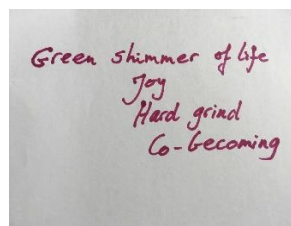 Green shimmer of life
Joy
Hard grind
Co-becoming